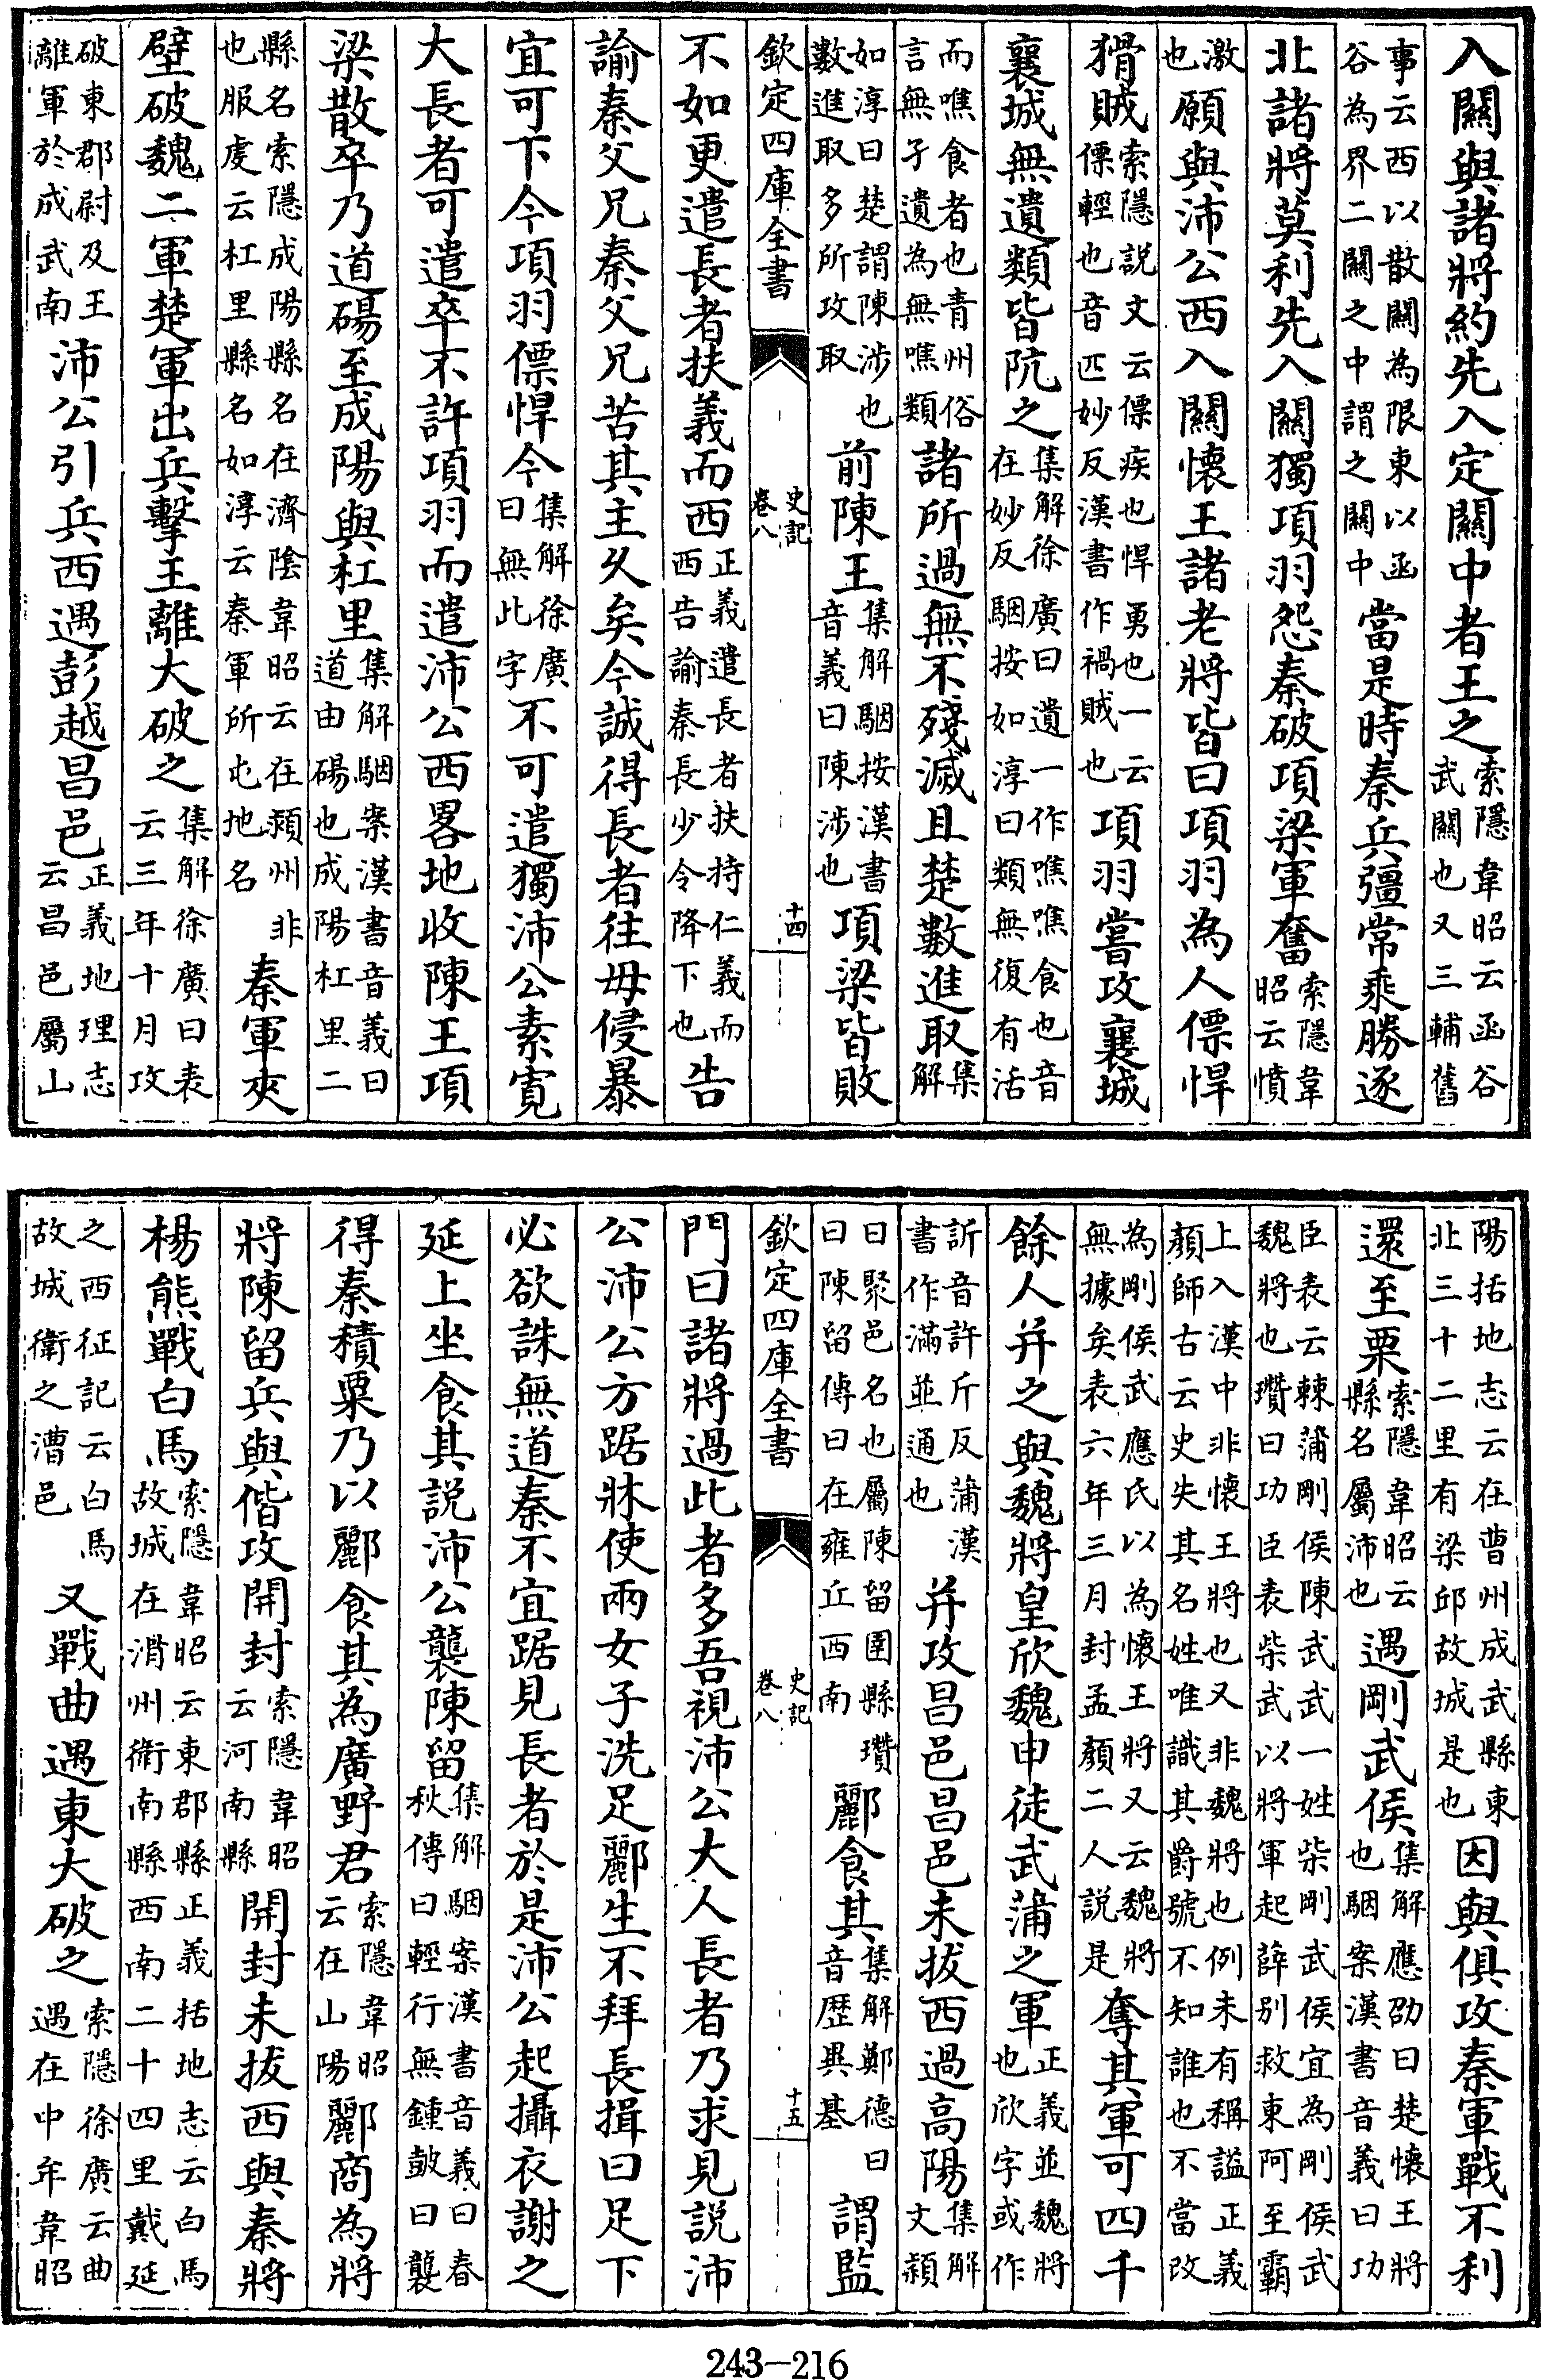 入關與諸將約先入定關中者王之索隱韋昭云函谷武關也又三輔舊
事云西以散關為限東以函谷為界二關之中謂之關中當是時秦兵彊常乘勝逐
北諸將莫利先入關獨項羽怨秦破項梁軍奮索隱韋昭云憤
激也願與沛公西入關懷王諸老將皆曰項羽為人僄悍
猾賊索隱説文云僄疾也悍勇也一云僄輕也音匹妙反漢書作禍賊也項羽嘗攻襄城
襄城無遺類皆阬之集解徐廣曰遺一作噍噍食也音在妙反駰按如淳曰類無復有活
而噍食者也青州俗言無孑遺為無噍類諸所過無不殘滅且楚數進取集解
如淳曰楚謂陳涉也數進取多所攻取前陳王集解駰按漢書音義曰陳涉也項梁皆敗
欽定四庫全書 史記卷八 十四
不如更遣長者扶義而西正義遣長者扶持仁義而西告諭秦長少令降下也告
諭秦父兄秦父兄苦其主久矣今誠得長者往毋侵暴
宜可下今項羽僄悍今集解徐廣曰無此字不可遣獨沛公素寛
大長者可遣卒不許項羽而遣沛公西畧地收陳王項
梁散卒乃道碭至成陽與杠里集解駰案漢書音義曰道由碭也成陽杠里二
縣名索隱成陽縣名在濟陰韋昭云在潁州非也服虔云杠里縣名如淳云秦軍所屯地名秦軍夾
壁破魏二軍楚軍出兵擊王離大破之集解徐廣曰表云三年十月攻
破東郡尉及王離軍於成武南沛公引兵西遇彭越昌邑正義地理志云昌邑屬山
陽括地志云在曹州成武縣東北三十二里有梁邱故城是也因與俱攻秦軍戰不利
還至栗索隱韋昭云縣名屬沛也遇剛武侯集解應劭曰楚懷王將也駰案漢書音義曰功
臣表云棘蒲剛侯陳武武一姓柴剛武侯宜為剛侯武魏將也瓚曰功臣表柴武以將軍起薛别救東阿至霸
上入漢中非懷王將也又非魏將也例未有稱謚正義顔師古云史失其名姓唯識其爵號不知誰也不當改
為剛侯武應氏以為懷王將又云魏將無據矣表六年三月封孟顔二人説是奪其軍可四千
餘人并之與魏將皇欣魏申徒武蒲之軍正義並魏將也欣字或作
訢音許斤反蒲漢書作滿並通也并攻昌邑昌邑未拔西過高陽集解文潁
曰聚邑名也屬陳留圉縣瓚曰陳留傳曰在雍丘西南酈食其集解鄭德曰音歴異基謂監
欽定四庫全書 史記卷八 十五
門曰諸將過此者多吾視沛公大人長者乃求見説沛
公沛公方踞牀使兩女子洗足酈生不拜長揖曰足下
必欲誅無道秦不宜踞見長者於是沛公起攝衣謝之
延上坐食其説沛公襲陳留集解駰案漢書音義曰春秋傳曰輕行無鍾鼓曰襲
得秦積粟乃以酈食其為廣野君索隱韋昭云在山陽酈商為將
將陳留兵與偕攻開封索隱韋昭云河南縣開封未拔西與秦將
楊熊戰白馬索隱韋昭云東郡縣正義括地志云白馬故城在滑州衛南縣西南二十四里戴延
之西征記云白馬故城衛之漕邑又戰曲遇東大破之索隱徐廣云曲遇在中牟韋昭
243-216